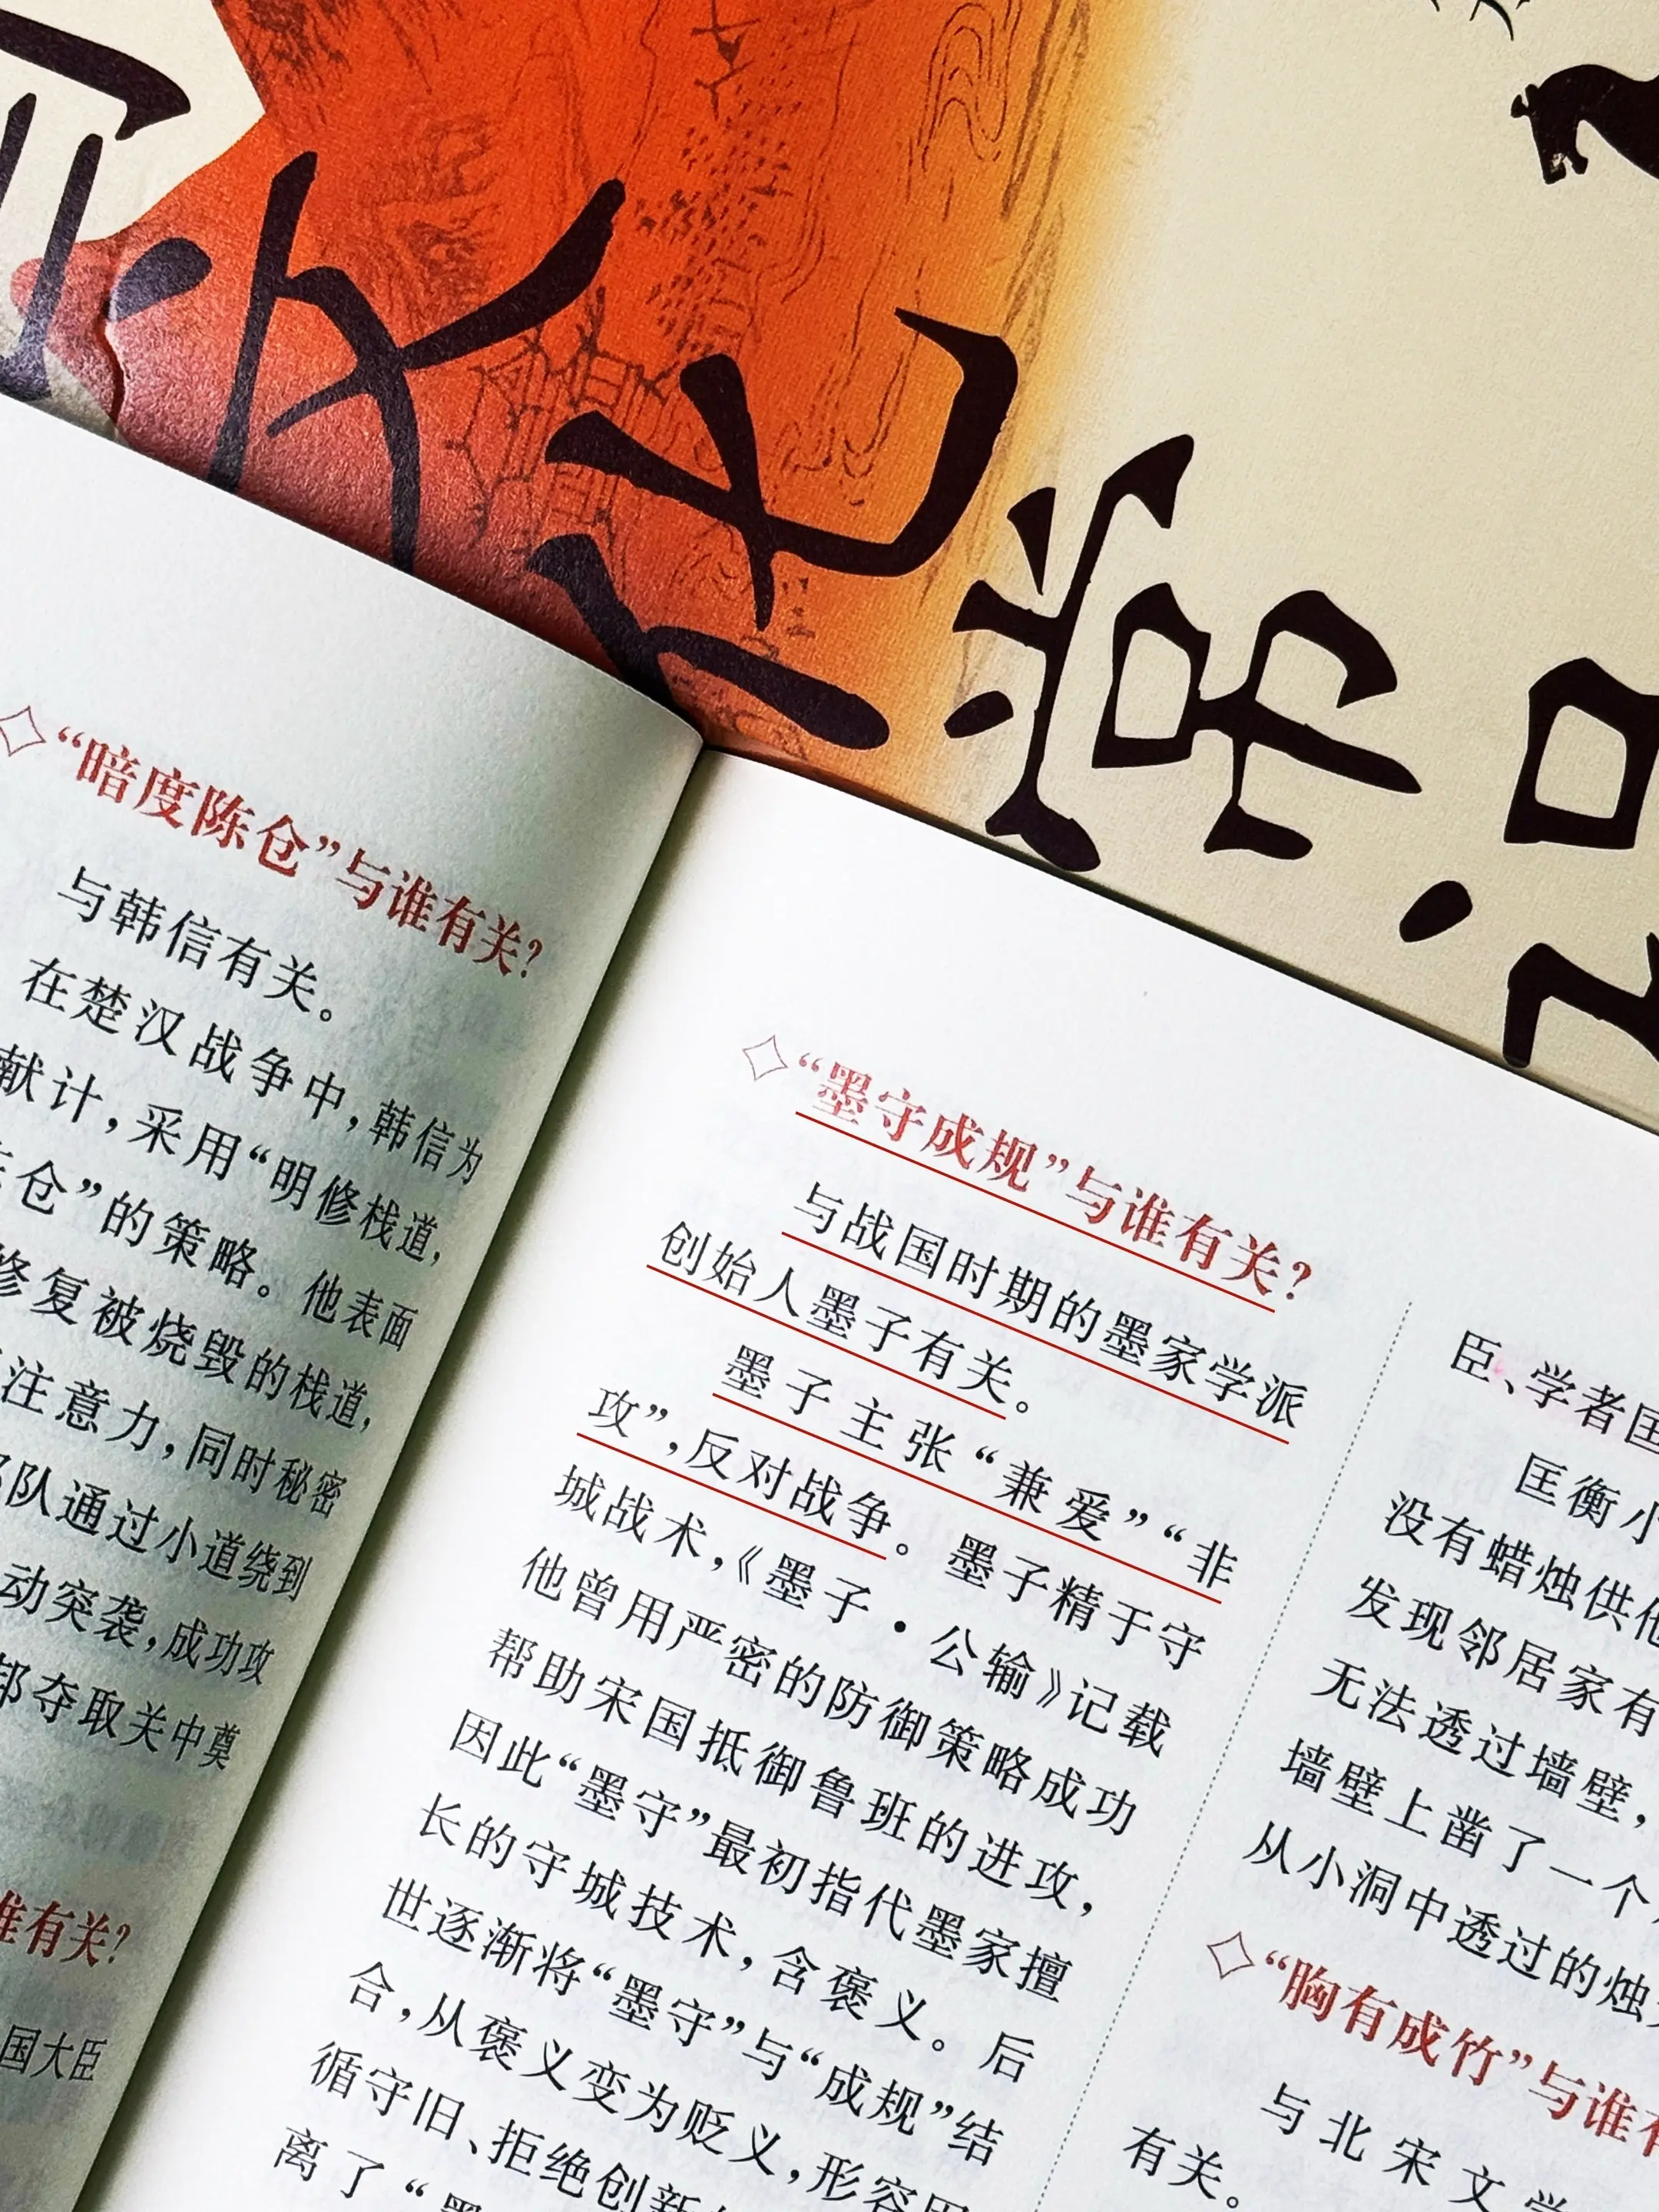 文化常识
“暗度陈仓”与谁有关?
与韩信有关。
在楚汉战争中,韩信为
献计,采用“明修栈道,
仓”的策略。他表面
修复被烧毁的栈道,
注意力,同时秘密
队通过小道绕到
动突袭,成功攻
邦夺取关中奠
谁有关?
国大臣
“墨守成规”与谁有关?
与战国时期的墨家学派
创始人墨子有关。
墨子主张“兼爱”“非
攻”,反对战争。墨子精于守
城战术,《墨子·公输》记载
他曾用严密的防御策略成功
帮助宋国抵御鲁班的进攻,
因此“墨守”最初指代墨家擅
长的守城技术,含褒义。后
世逐渐将“墨守”与“成规”结
合,从褒义变为贬义,形容因
循守旧、拒绝创新
离了“墨
臣、学者匡
匡衡小
没有蜡烛供他
发现邻居家有
无法透过墙壁,
墙壁上凿了一个
从小洞中透过的烛
“胸有成竹”与谁有
与北宋文学
有关。